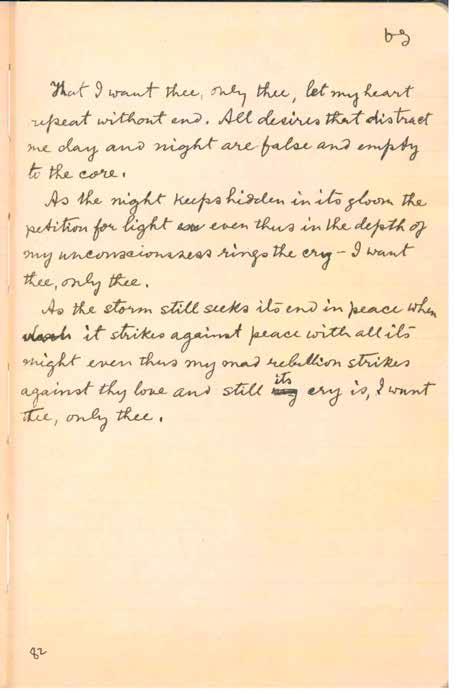 ৮৯
That I want thee, only thee, let my heart
repeat without end. All desires that distract
me day and night are false and empty
to the core.
As the night keeps hidden in its gloom the
petition for light even thus in the depth of
my unconsciousness rings the cry – I want
thee, only thee.
As the storm still seeks its end in peace when
it strikes against peace with all its
might even thus my mad rebellion strikes
against thy love and still its cry is, I want
thee, only thee.
82